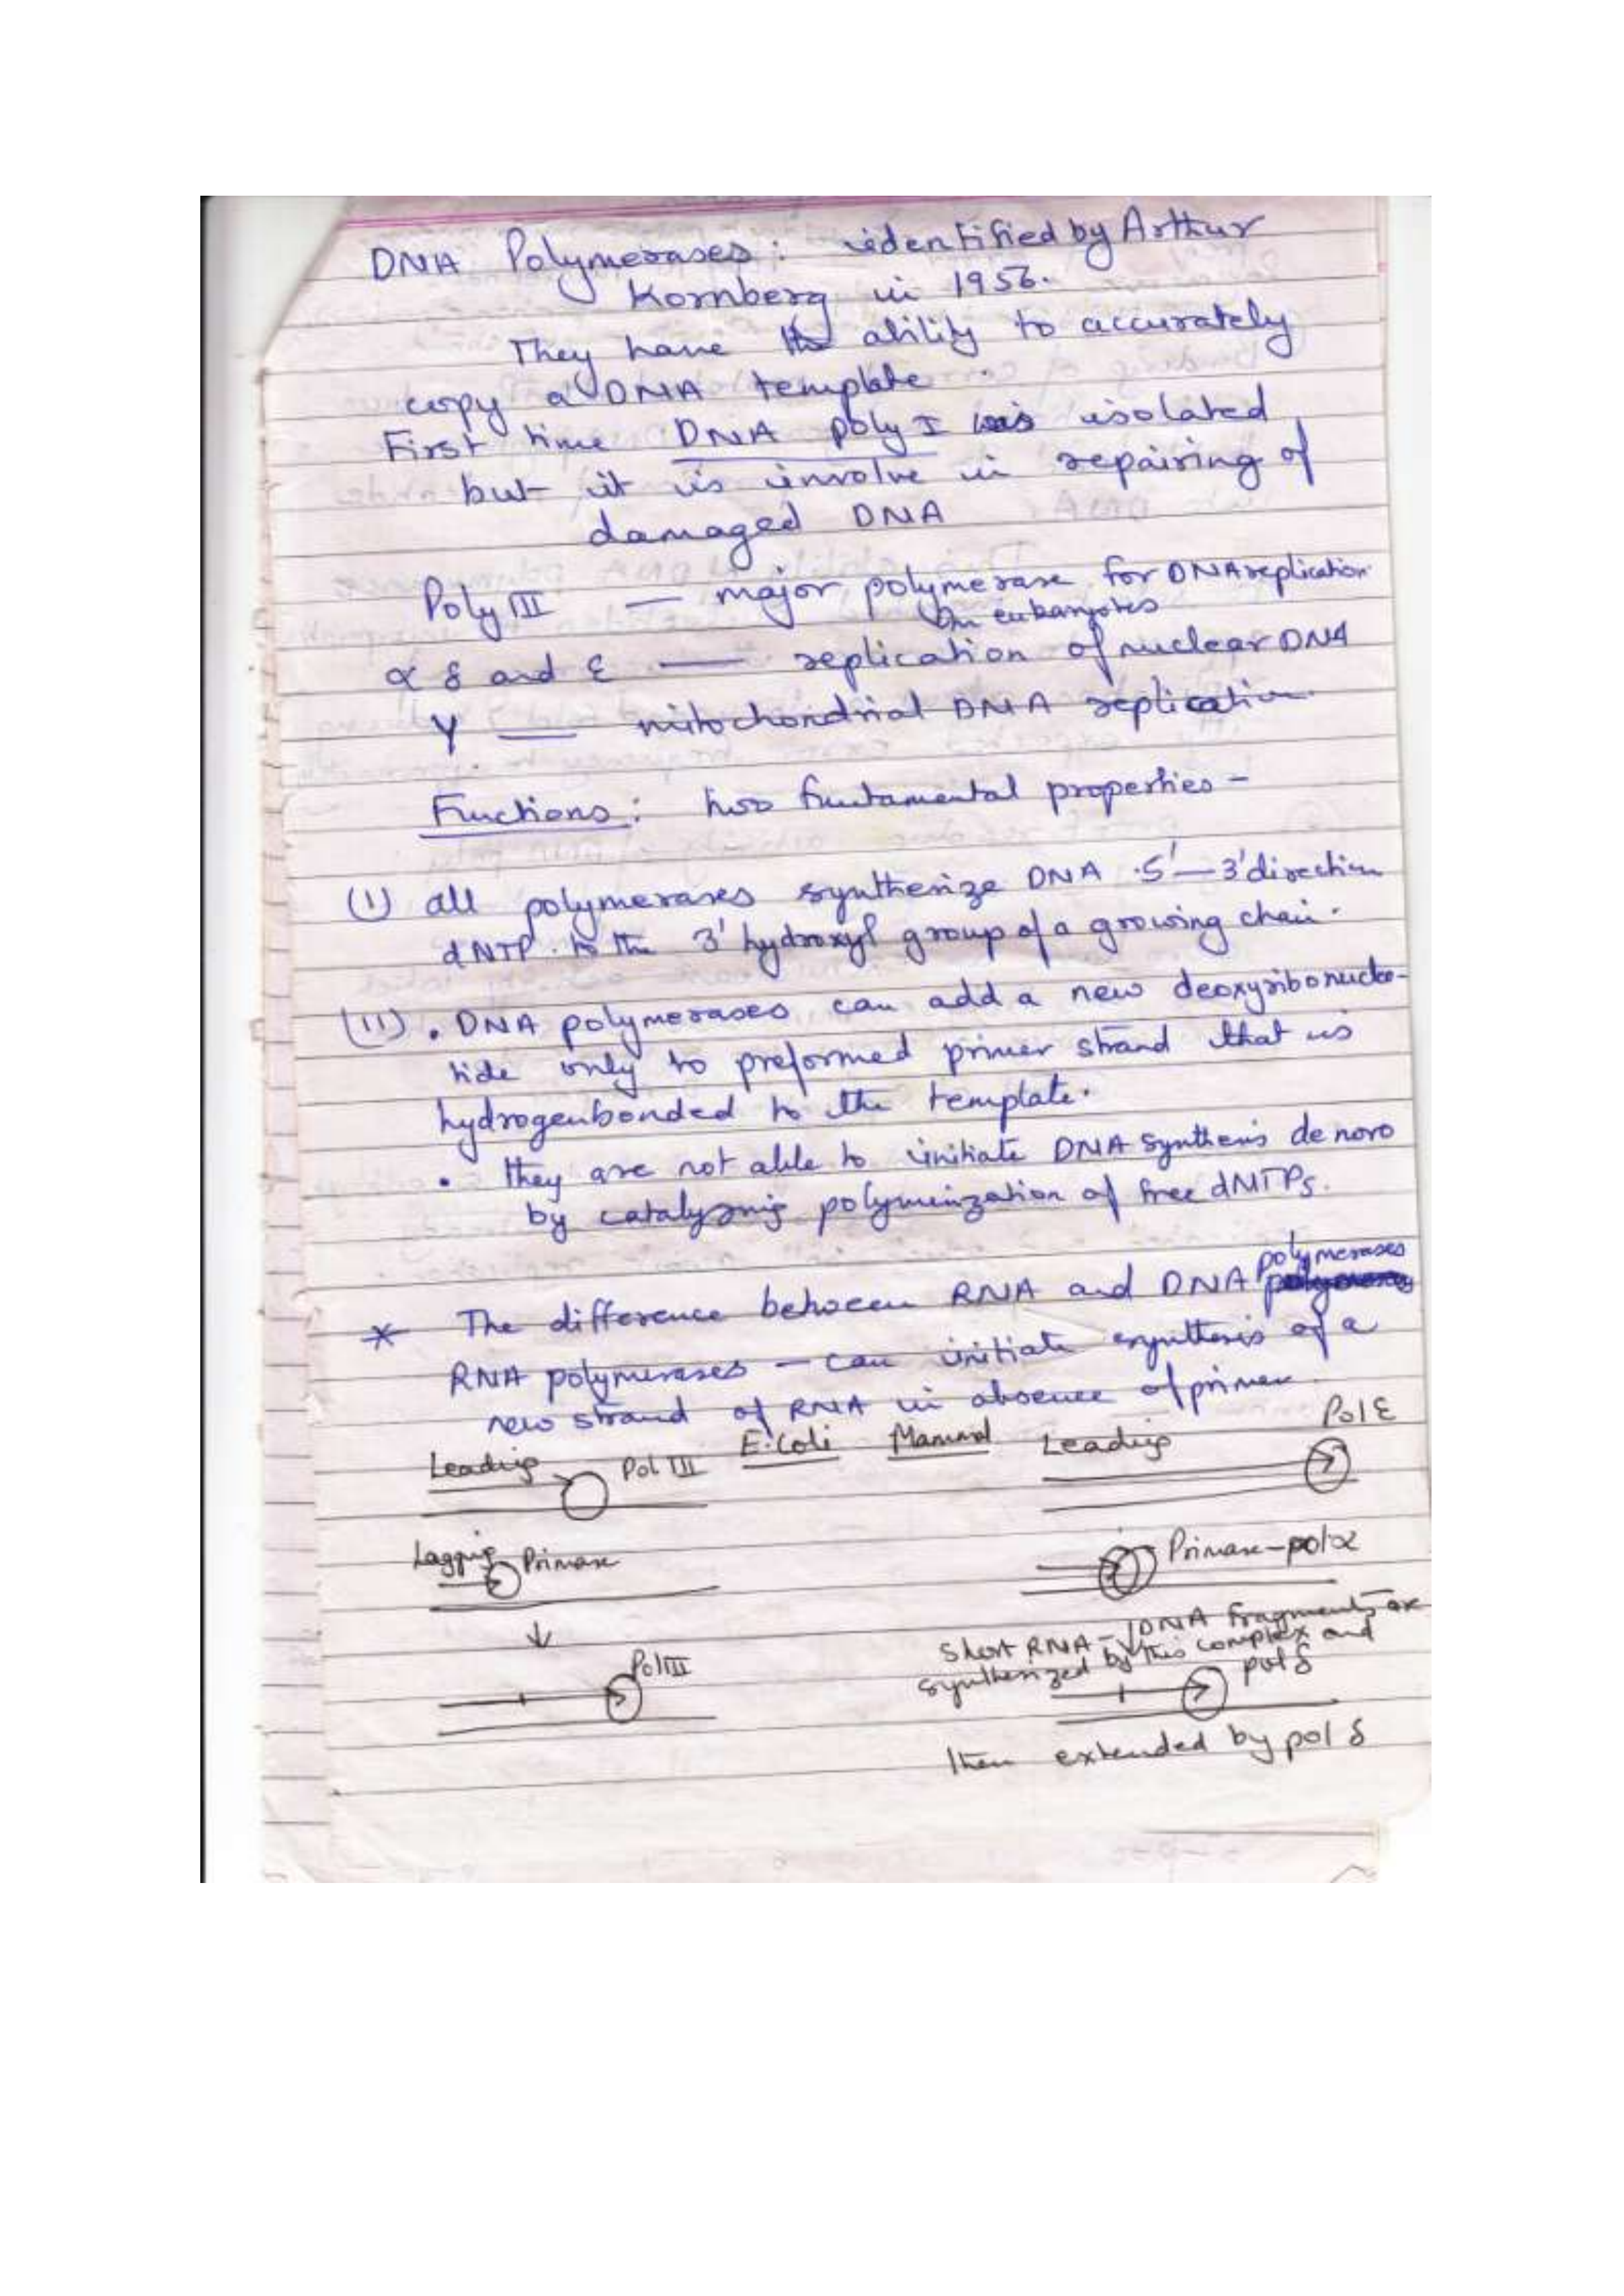 DNA Polymerases: identified by Arthur
Kornberg in 1956.
They have the ability to accurately
copy a DNA template.
First time DNA poly I was isolated
but it is involve in repairing of
damaged DNA
Poly III — major polymerase for DNA replication
In eukaryotes
α δ and ε — replication of nuclear DNA
γ — mitochondrial DNA replication.
Fuctions: two funtamental properties -
(I) all polymerases synthesize DNA 5'—3' direction
dNTP to the 3' hydroxyl group of a growing chain.
(II) • DNA polymerases can add a new deoxyribonucleo-
tide only to preformed primer strand that is
hydrogenbonded to the template.
• they are not able to initiate DNA synthesis de novo
by catalysing polymerization of free dNTPs.
polymerases
* The difference between RNA and DNA
RNA polymerases - can initiate synthesis of a
new strand of RNA in absence of primer.
E.Coli Mammal
Leading Pol III
Leading Pol ε
Lagging Primase
Primase-pol α
Short RNA-DNA fragments are
synthesized by this complex and
Pol III
pol δ
then extended by pol δ